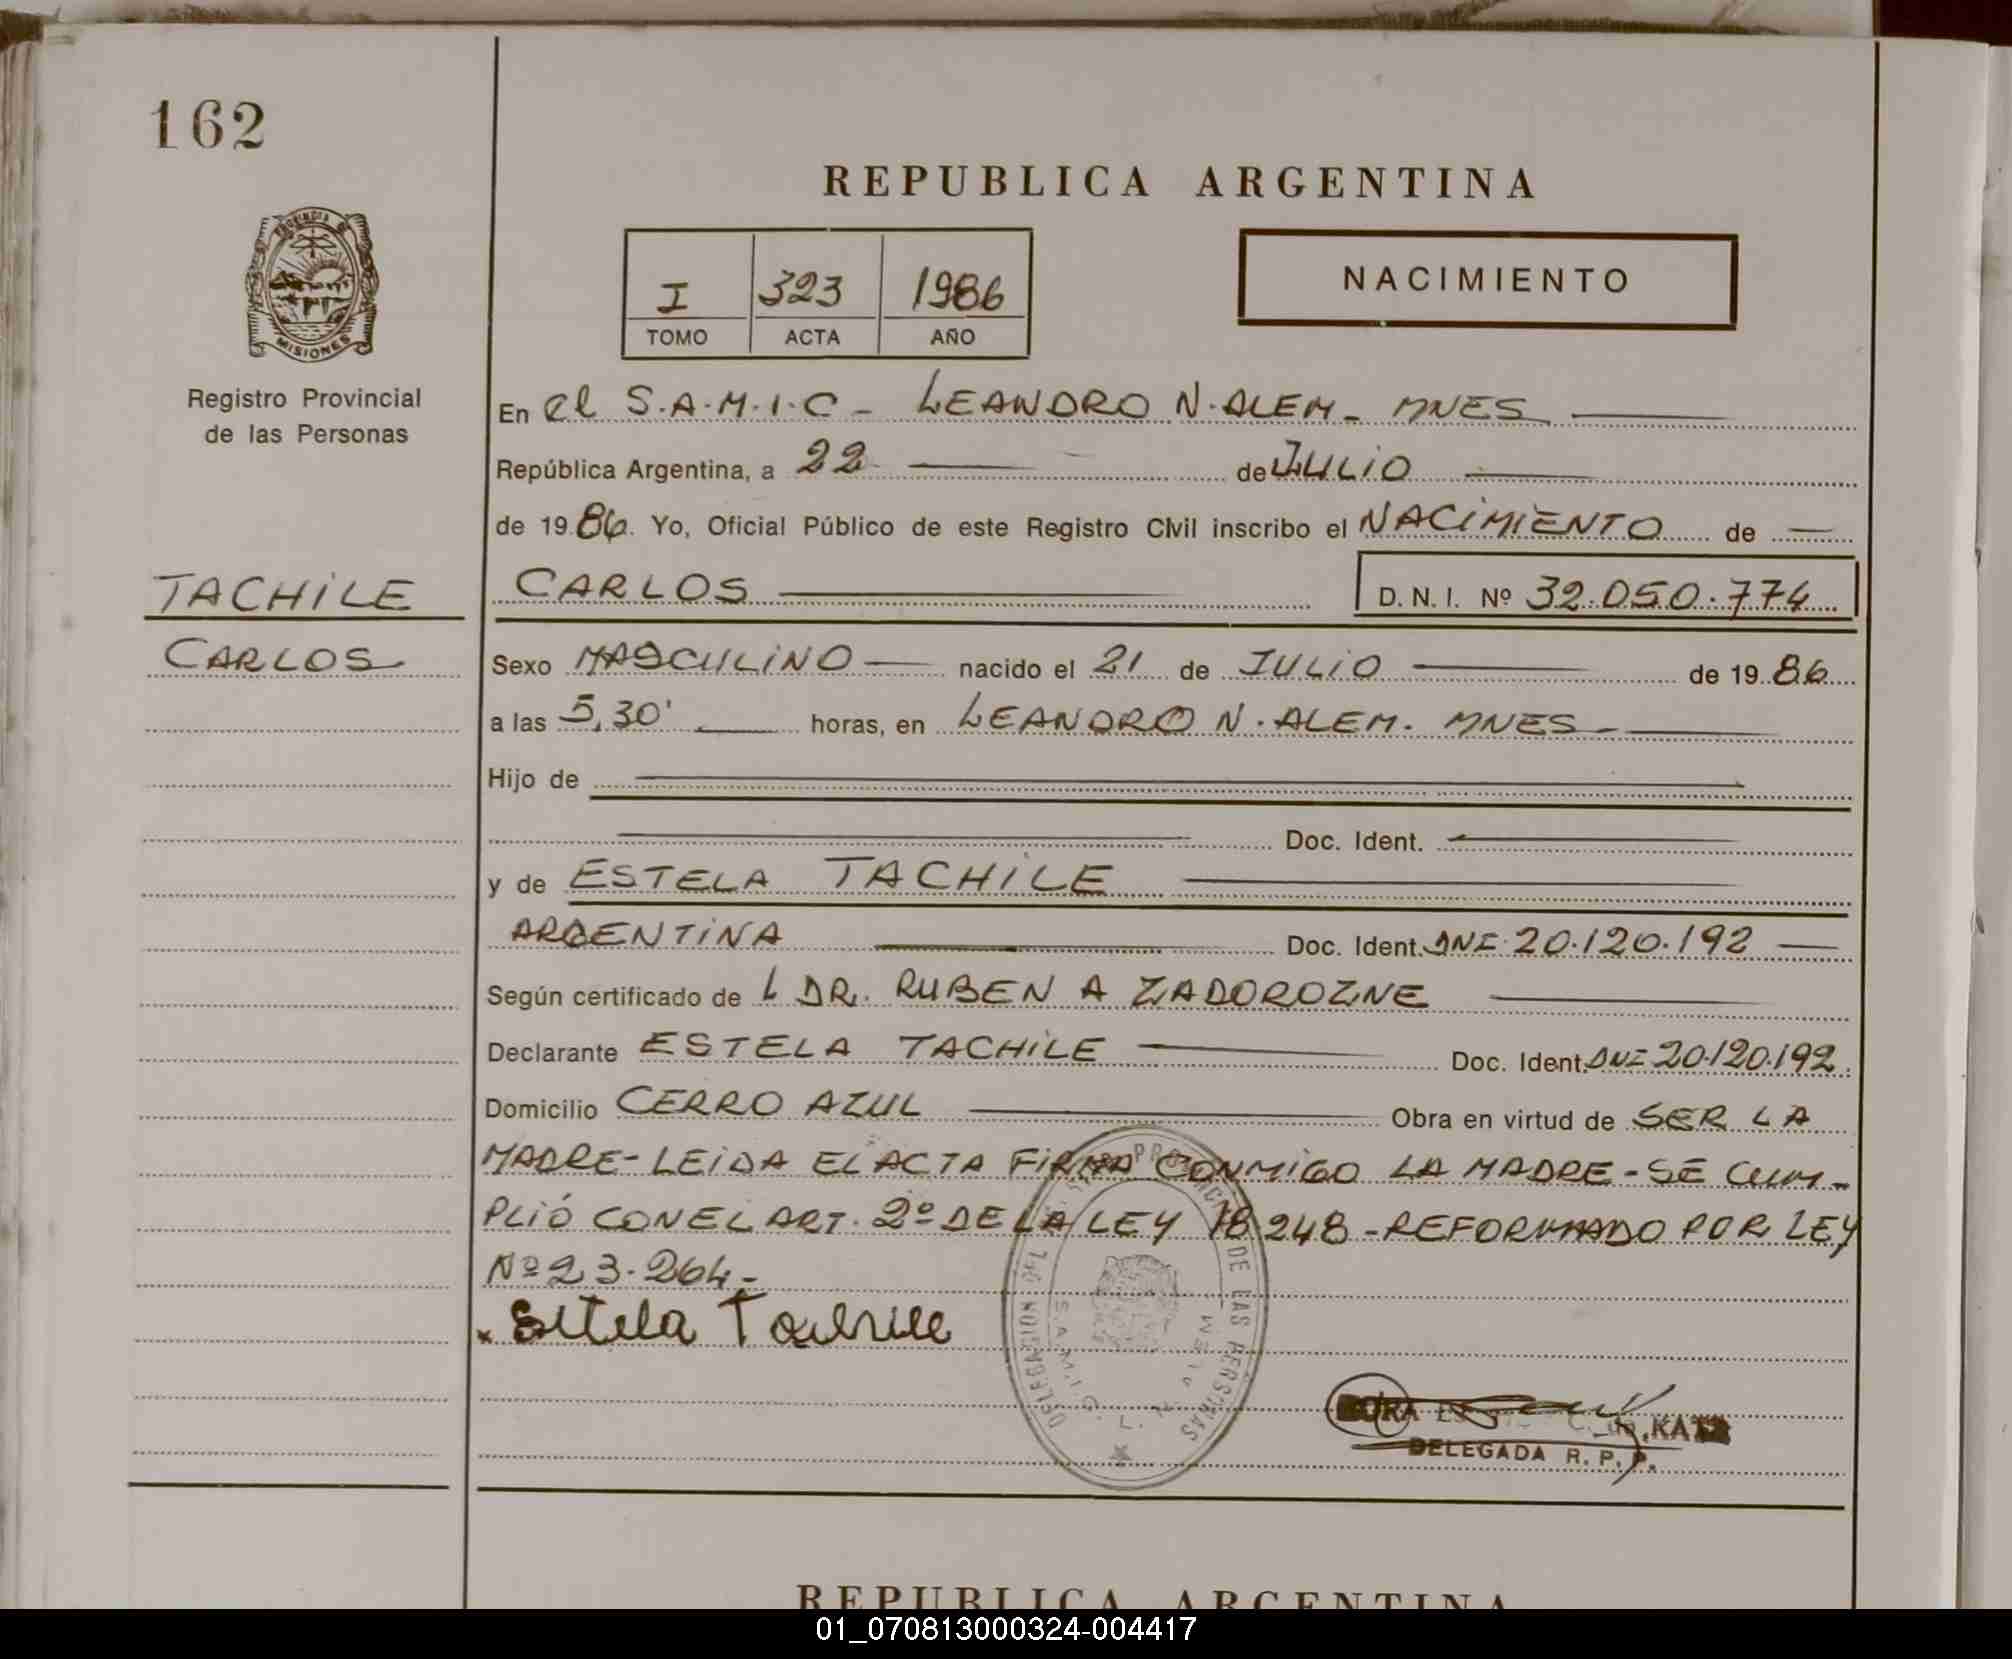 162
REPUBLICA ARGENTINA
PROVINCIA DE
MISIONES
I 323 1986
TOMO ACTA AÑO
NACIMIENTO
Registro Provincial
de las Personas
En el S.A.M.I.C - LEANDRO N. ALEM - MNES
República Argentina, a 22 de JULIO
de 1986. Yo, Oficial Público de este Registro Civil inscribo el NACIMIENTO de
TACHILE
CARLOS D. N. I. Nº 32.050.774
CARLOS
Sexo MASCULINO nacido el 21 de JULIO de 1986
a las 5,30' horas, en LEANDRO N. ALEM. MNES -
Hijo de
Doc. Ident.
y de ESTELA TACHILE
ARGENTINA Doc. Ident. DNI 20.120.192
Según certificado de L DR. RUBEN A ZADOROZNE
Declarante ESTELA TACHILE Doc. Ident. DNI 20.120.192
Domicilio CERRO AZUL Obra en virtud de SER LA
MADRE - LEIDA EL ACTA FIRMA CONMIGO LA MADRE - SE CUM-
PLIÓ CON EL ART. 2º DE LA LEY 18248 - REFORMADO POR LEY
Nº 23.264 -
x Estela Tachile
DELEGACION DEL PROVINCIAL DE LAS PERSONAS
S.A.M.I.C. L. N. ALEM
KATZ
DELEGADA R. P. P.
REPUBLICA ARGENTINA
01_070813000324-004417